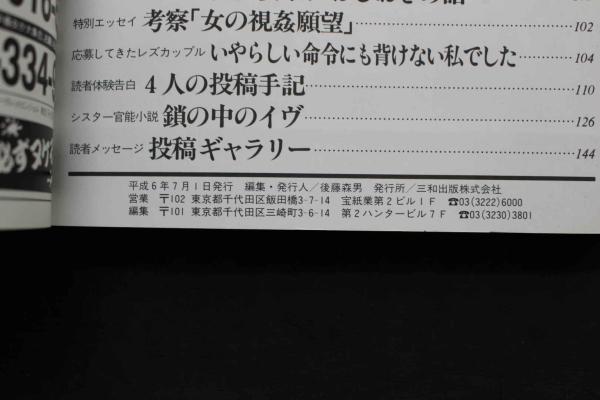 特別エッセイ 考察「女の視姦願望」……102
応募してきたレズカップル いやらしい命令にも背けない私でした……104
読者体験告白 4人の投稿手記……110
シスター官能小説 鎖の中のイヴ……126
読者メッセージ 投稿ギャラリー……144
平成6年7月1日発行 編集・発行人/後藤森男 発行所/三和出版株式会社
営業 〒102 東京都千代田区飯田橋3-7-14 宝紙業第2ビル1F ☎03(3222)6000
編集 〒101 東京都千代田区三崎町3-6-14 第2ハンタービル7F ☎03(3230)3801
334